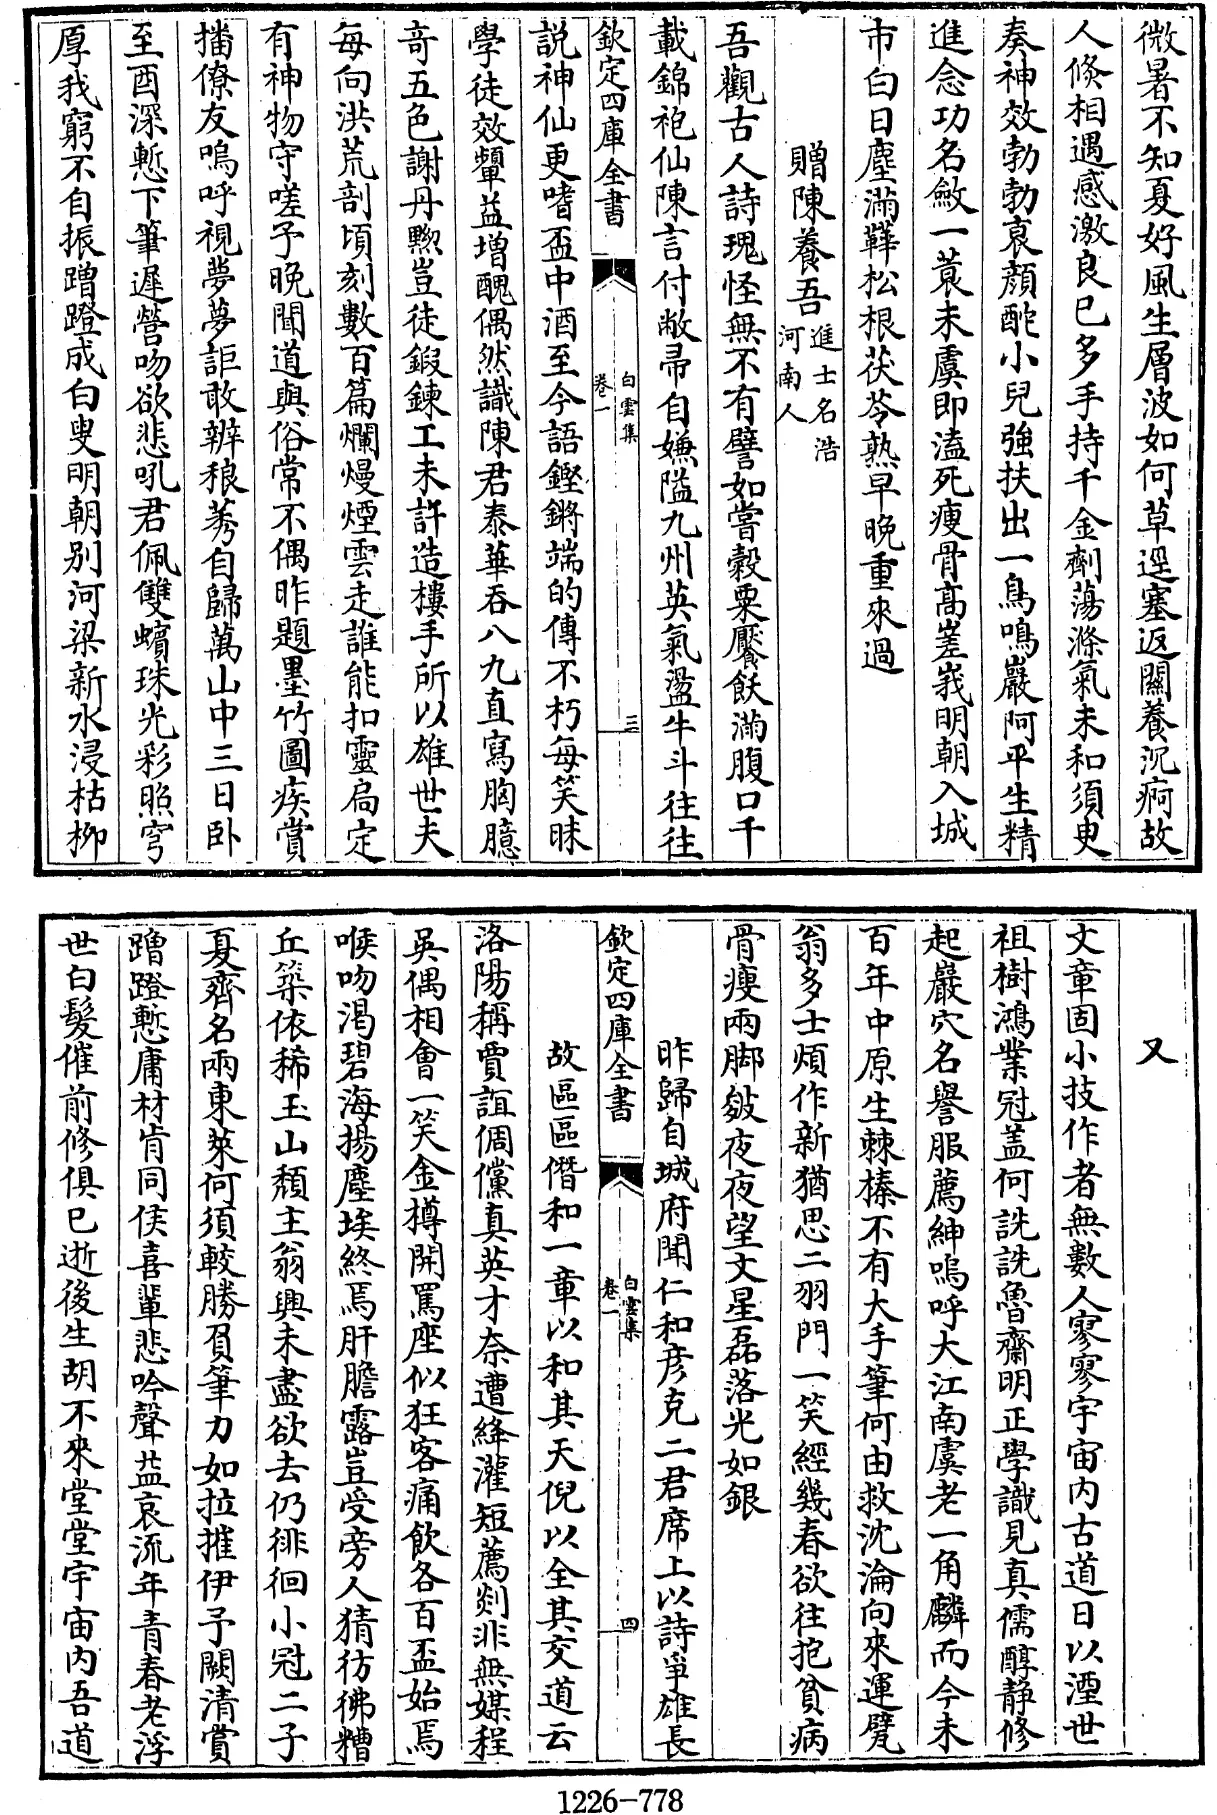 微暑不知夏好風生層波如何草逕塞返關養沉痾故
人倏相遇感激良已多手持千金劑蕩滌氣未和須臾
奏神效勃勃衰顔酡小兒強扶出一鳥鳴巖阿平生精
進念功名斂一蓑未虞即溘死瘦骨髙嵳峩明朝入城
市白日塵滿鞾松根茯苓熟早晚重來過
贈陳養吾進士名浩
河南人
吾觀古人詩瑰怪無不有譬如嘗穀粟饜飫滿腹口千
載錦袍仙陳言付敝帚自嫌隘九州英氣盪牛斗往往
欽定四庫全書
白雲集
卷一
三
説神仙更嗜盃中酒至今語鏗鏘端的傳不朽每笑昧
學徒效顰益増醜偶然識陳君泰華吞八九直寫胸臆
竒五色謝丹黝豈徒鍜鍊工未許造樓手所以雄世夫
每向洪荒剖頃刻數百篇爛熳煙雲走誰能扣靈局定
有神物守嗟予晚聞道與俗常不偶昨題墨竹圖疾賞
播僚友嗚呼視夢夢詎敢辨稂莠自歸萬山中三日卧
至酉深慙下筆遲營吻欲悲吼君佩雙蠙珠光彩照穹
厚我窮不自振蹭蹬成白叟明朝别河梁新水浸枯柳
又
文章固小技作者無數人寥寥宇宙内古道日以湮世
祖樹鴻業冠盖何詵詵魯齋明正學識見真儒醇静修
起巖穴名譽服薦紳嗚呼大江南虞老一角麟而今未
百年中原生棘榛不有大手筆何由救沈淪向來運甓
翁多士煩作新猶思二羽門一笑經幾春欲往抱貧病
骨瘦兩脚皴夜夜望文星磊落光如銀
昨歸自城府聞仁和彦克二君席上以詩爭雄長
欽定四庫全書
白雲集
卷一
四
故區區僭和一章以和其天倪以全其交道云
洛陽稱賈誼倜儻真英才奈遭絳灌短薦剡非無媒程
吳偶相會一笑金樽開罵座似狂客痛飲各百盃始焉
喉吻渇碧海揚塵埃終焉肝膽露豈受旁人猜彷彿糟
丘築依稀玉山頽主翁興未盡欲去仍徘徊小冠二子
夏齊名兩東萊何須較勝負筆力如拉摧伊予闕清賞
蹭蹬慙庸材肯同侯喜輩悲吟聲益哀流年青春老浮
世白髮催前修俱已逝後生胡不來堂堂宇宙内吾道
1226-778